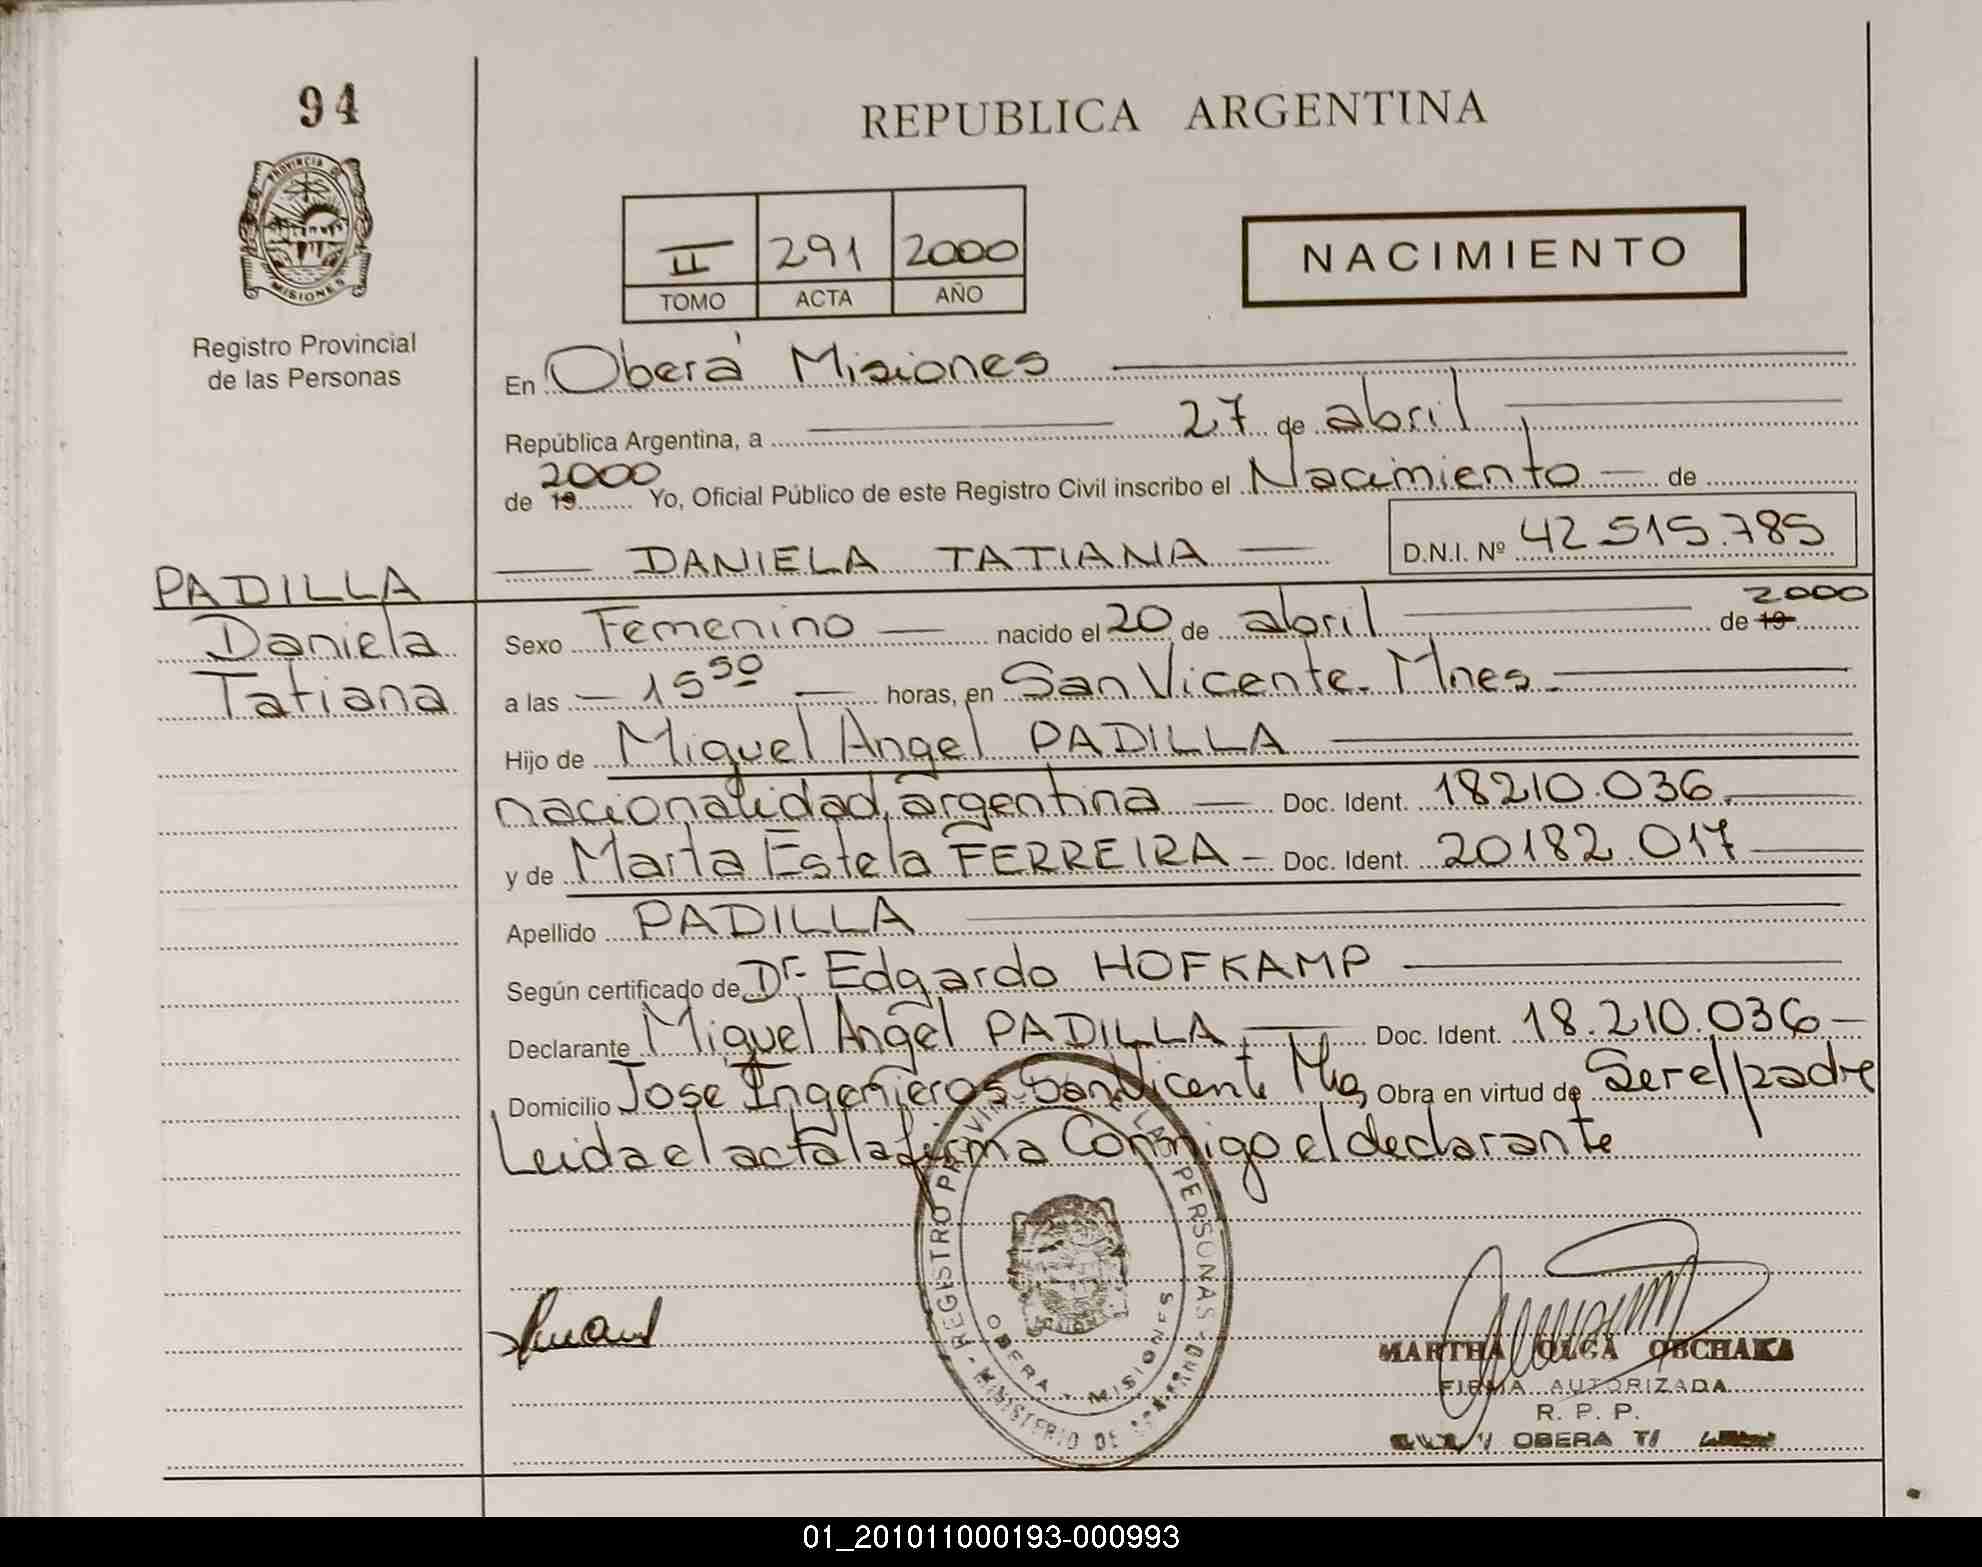 94
REPUBLICA ARGENTINA
PROVINCIA DE
MISIONES
Registro Provincial
de las Personas
II 291 2000
TOMO ACTA AÑO
NACIMIENTO
En Oberá Misiones
República Argentina, a 27 de abril
de 19 2000 Yo, Oficial Público de este Registro Civil inscribo el Nacimiento de
DANIELA TATIANA D.N.I. Nº 42515.785
PADILLA
Daniela
Tatiana
Sexo Femenino nacido el 20 de abril de 19 2000
a las 15 50 horas, en San Vicente. Mnes.
Hijo de Miguel Angel PADILLA
nacionalidad argentina Doc. Ident. 18210.036.
y de Marta Estela FERREIRA Doc. Ident. 20182.017
Apellido PADILLA
Según certificado de Dr. Edgardo HOFKAMP
Declarante Miguel Angel PADILLA Doc. Ident. 18.210.036
Domicilio José Ingenieros San Vicente Obra en virtud de Ser el padre
Leida el acta la firma Conmigo el declarante
REGISTRO PROVINCIAL DE LAS PERSONAS
MINISTERIO DE
OBERA - MISIONES
MARTHA OLGA OBCHAKA
FIRMA AUTORIZADA
R. P. P.
OBERA
01_201011000193-000993